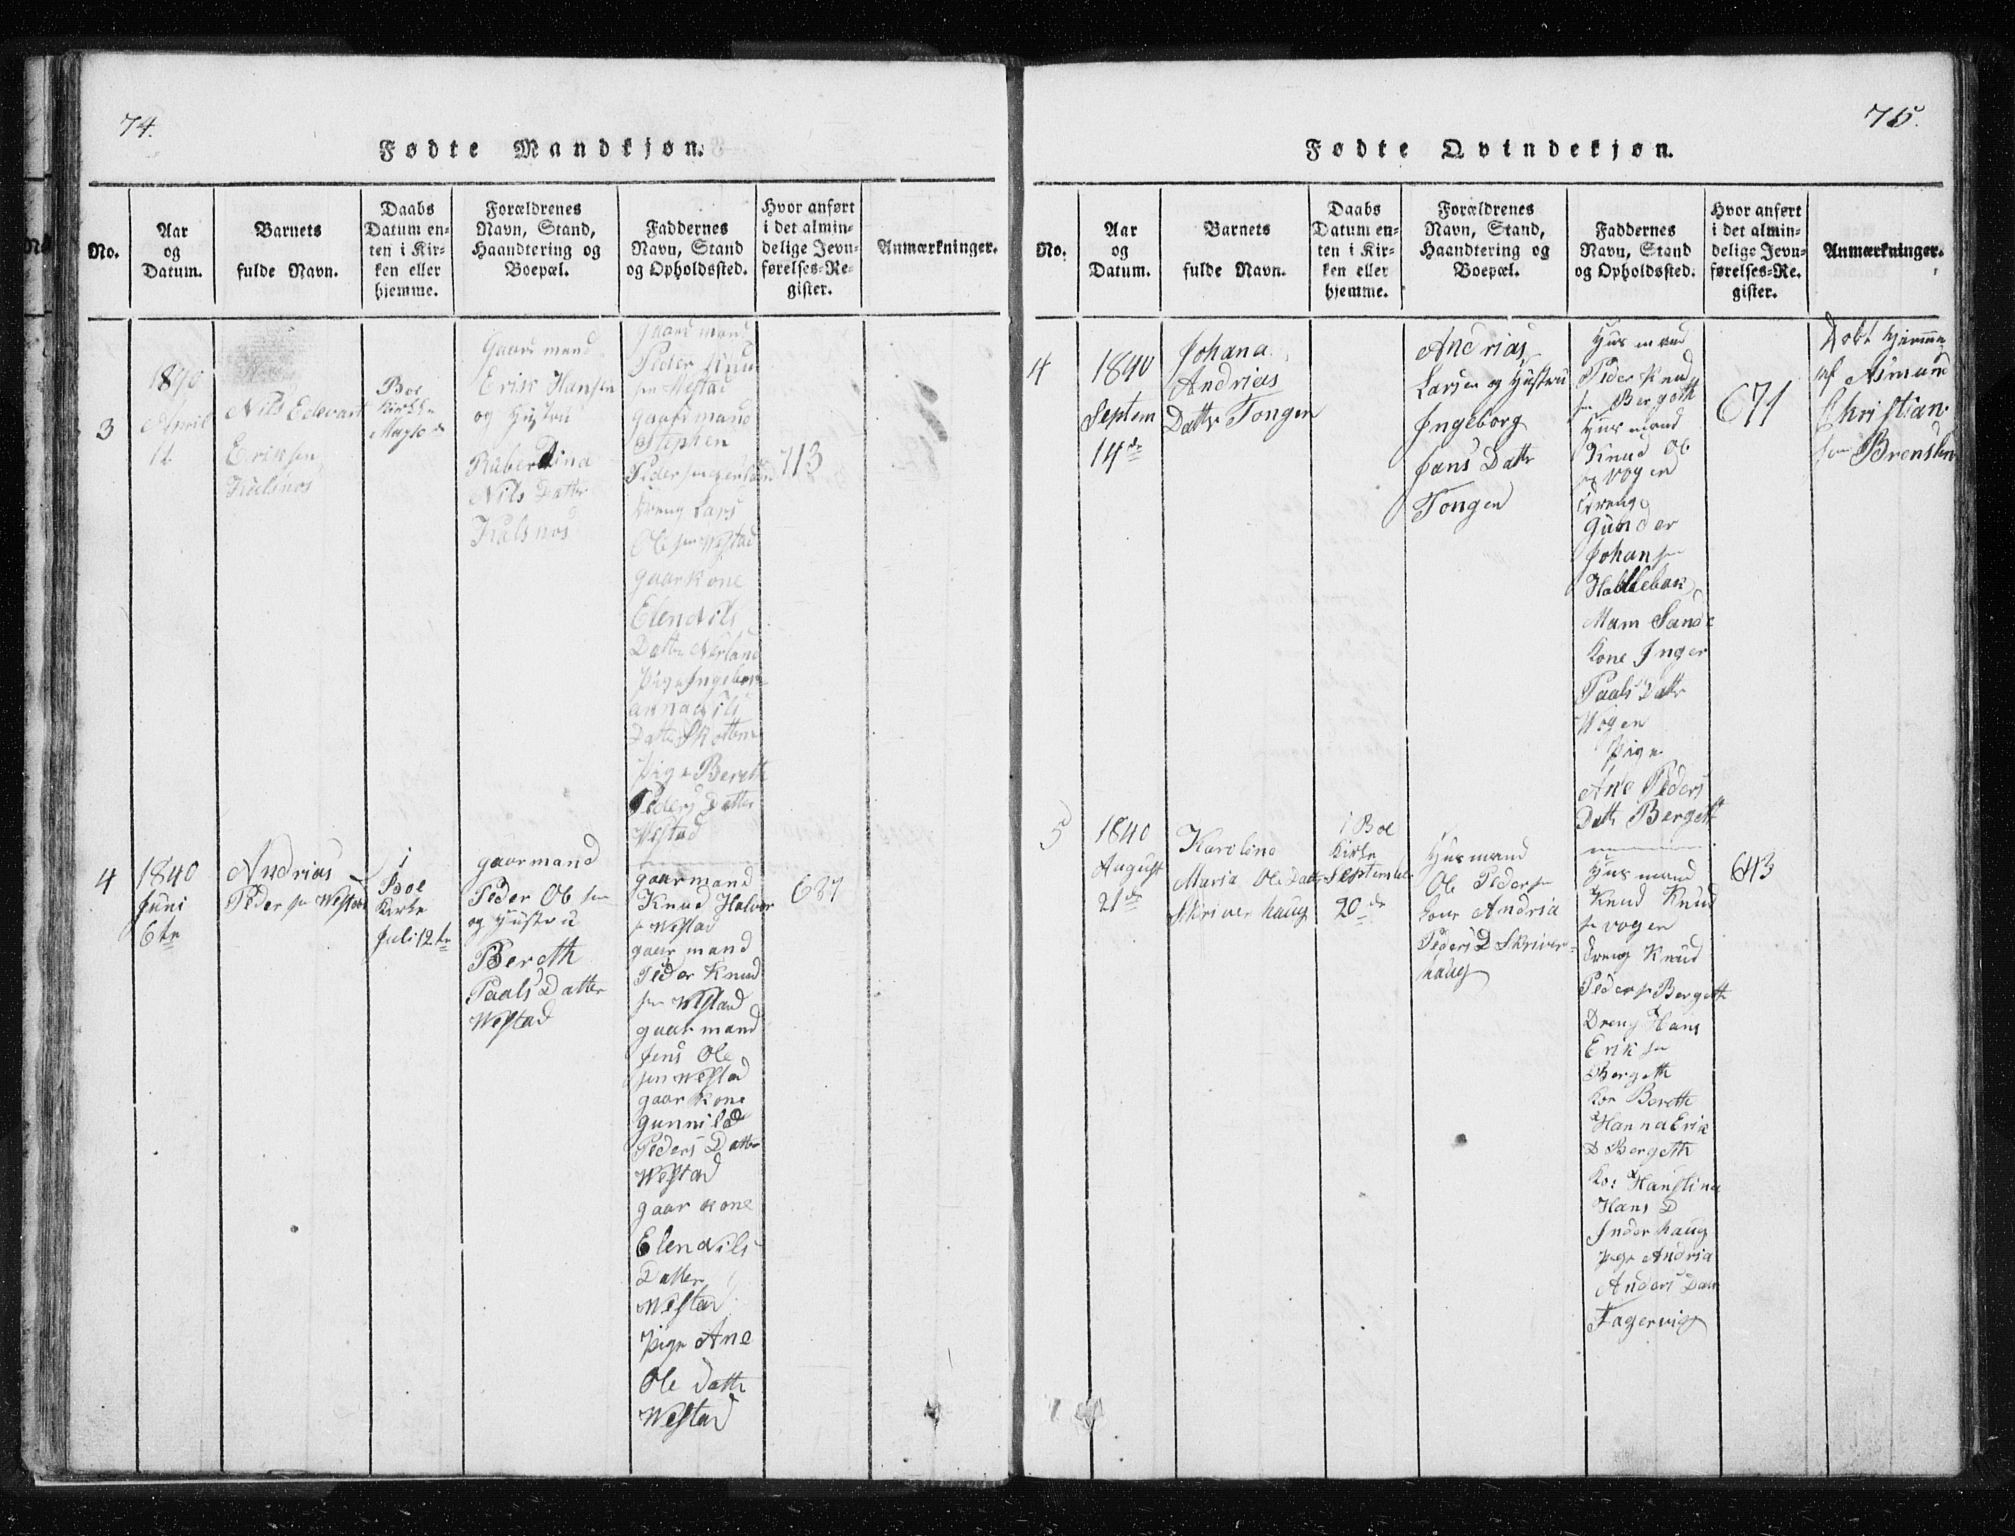 74.
Fødte Mandkjøn.
No.
Aar
og
Datum.
Barnets
fulde Navn.
Daabs
Datum en-
ten i Kir-
ken eller
hjemme.
Forældrenes
Navn, Stand,
Haandtering og
Boepæl.
Faddernes
Navn, Stand
og Opholdssted.
Hvor anført
i det almin-
delige Jevn-
førelses-Re-
gister.
Anmærkninger.
3
1840
April
Nils Edevart
Eriksen
Boe
Kirke
May 10
Gaardmand
Erik Hansen
og Hustru
Nils Datter
Kalsnos
gaardmand
Peder Knud
sen Westad
gaardmand
Stephen
Dreng Lars
Ole sen Westad
gaarkone
Elen Nils
Datter Nerland
Pige Ingebor
anna Nils
Datter
Pige Bereth
Peders Datter
Westad
713
4
1840
Juni
6te
Andrias
Peder sen Westad
i
Boe
Kirke
Juli 12te
gaarmand
Peder Ole sen
og Hustru
Bereth
Paals Datter
Westad
gaarmand
Knud Halvor
sen Westad
gaarmand
Peder Knud
sen Westad
gaarmand
Jens Ole
sen Westad
gaarkone
Gunnild
Peders Datter
Westad
gaarkone
Elen Nils
Datter
Westad
Pige Ane
Ole Datter
Westad
687
75.
Fødte Qvindekjøn.
No.
Aar
og
Datum.
Barnets
fulde Navn.
Daabs
Datum en-
ten i Kir-
ken eller
hjemme.
Forældrenes
Navn, Stand,
Haandtering og
Boepæl.
Faddernes
Navn, Stand
og Opholdssted.
Hvor anført
i det almin-
delige Jevn-
førelses-Re-
gister.
Anmærkninger.
4
1840
Septem
14de
Johana
Andrias
Datter Tongen
Andrias
Larsen og Hustru
Ingeborg
Jans Datter
Tongen
Husmand
Peder Knud
sen Bergeth
Husmand
Knud Ole
sen Vogen
Dreng
Gunder
Johansen
Mam Sande
Kone Inger
Paals Datter
Wogen
Pige
Ane Peders
Datter Bergeth
671
Døbt hjemme
af Asmund
Christian
sen
5
1840
August
21de
Karoline
Maria Ole Datter
Skriverhaug
i Boe
Kirke
September
20de
Husmand
Ole Pedersen
Kone Andria
Peders D Skriver=
haug
Husmand
Knud Knud
sen Vogen
Dreng Knud
Pedersen Bergeth
Dreng Hans
Eriksen
Bergeth
Kone Berette
Hanna Erik
D Bergeth
Kone Hanstina
Hans D
Inderhaug
Pige Andria
Anders Datter
Fagervig
643